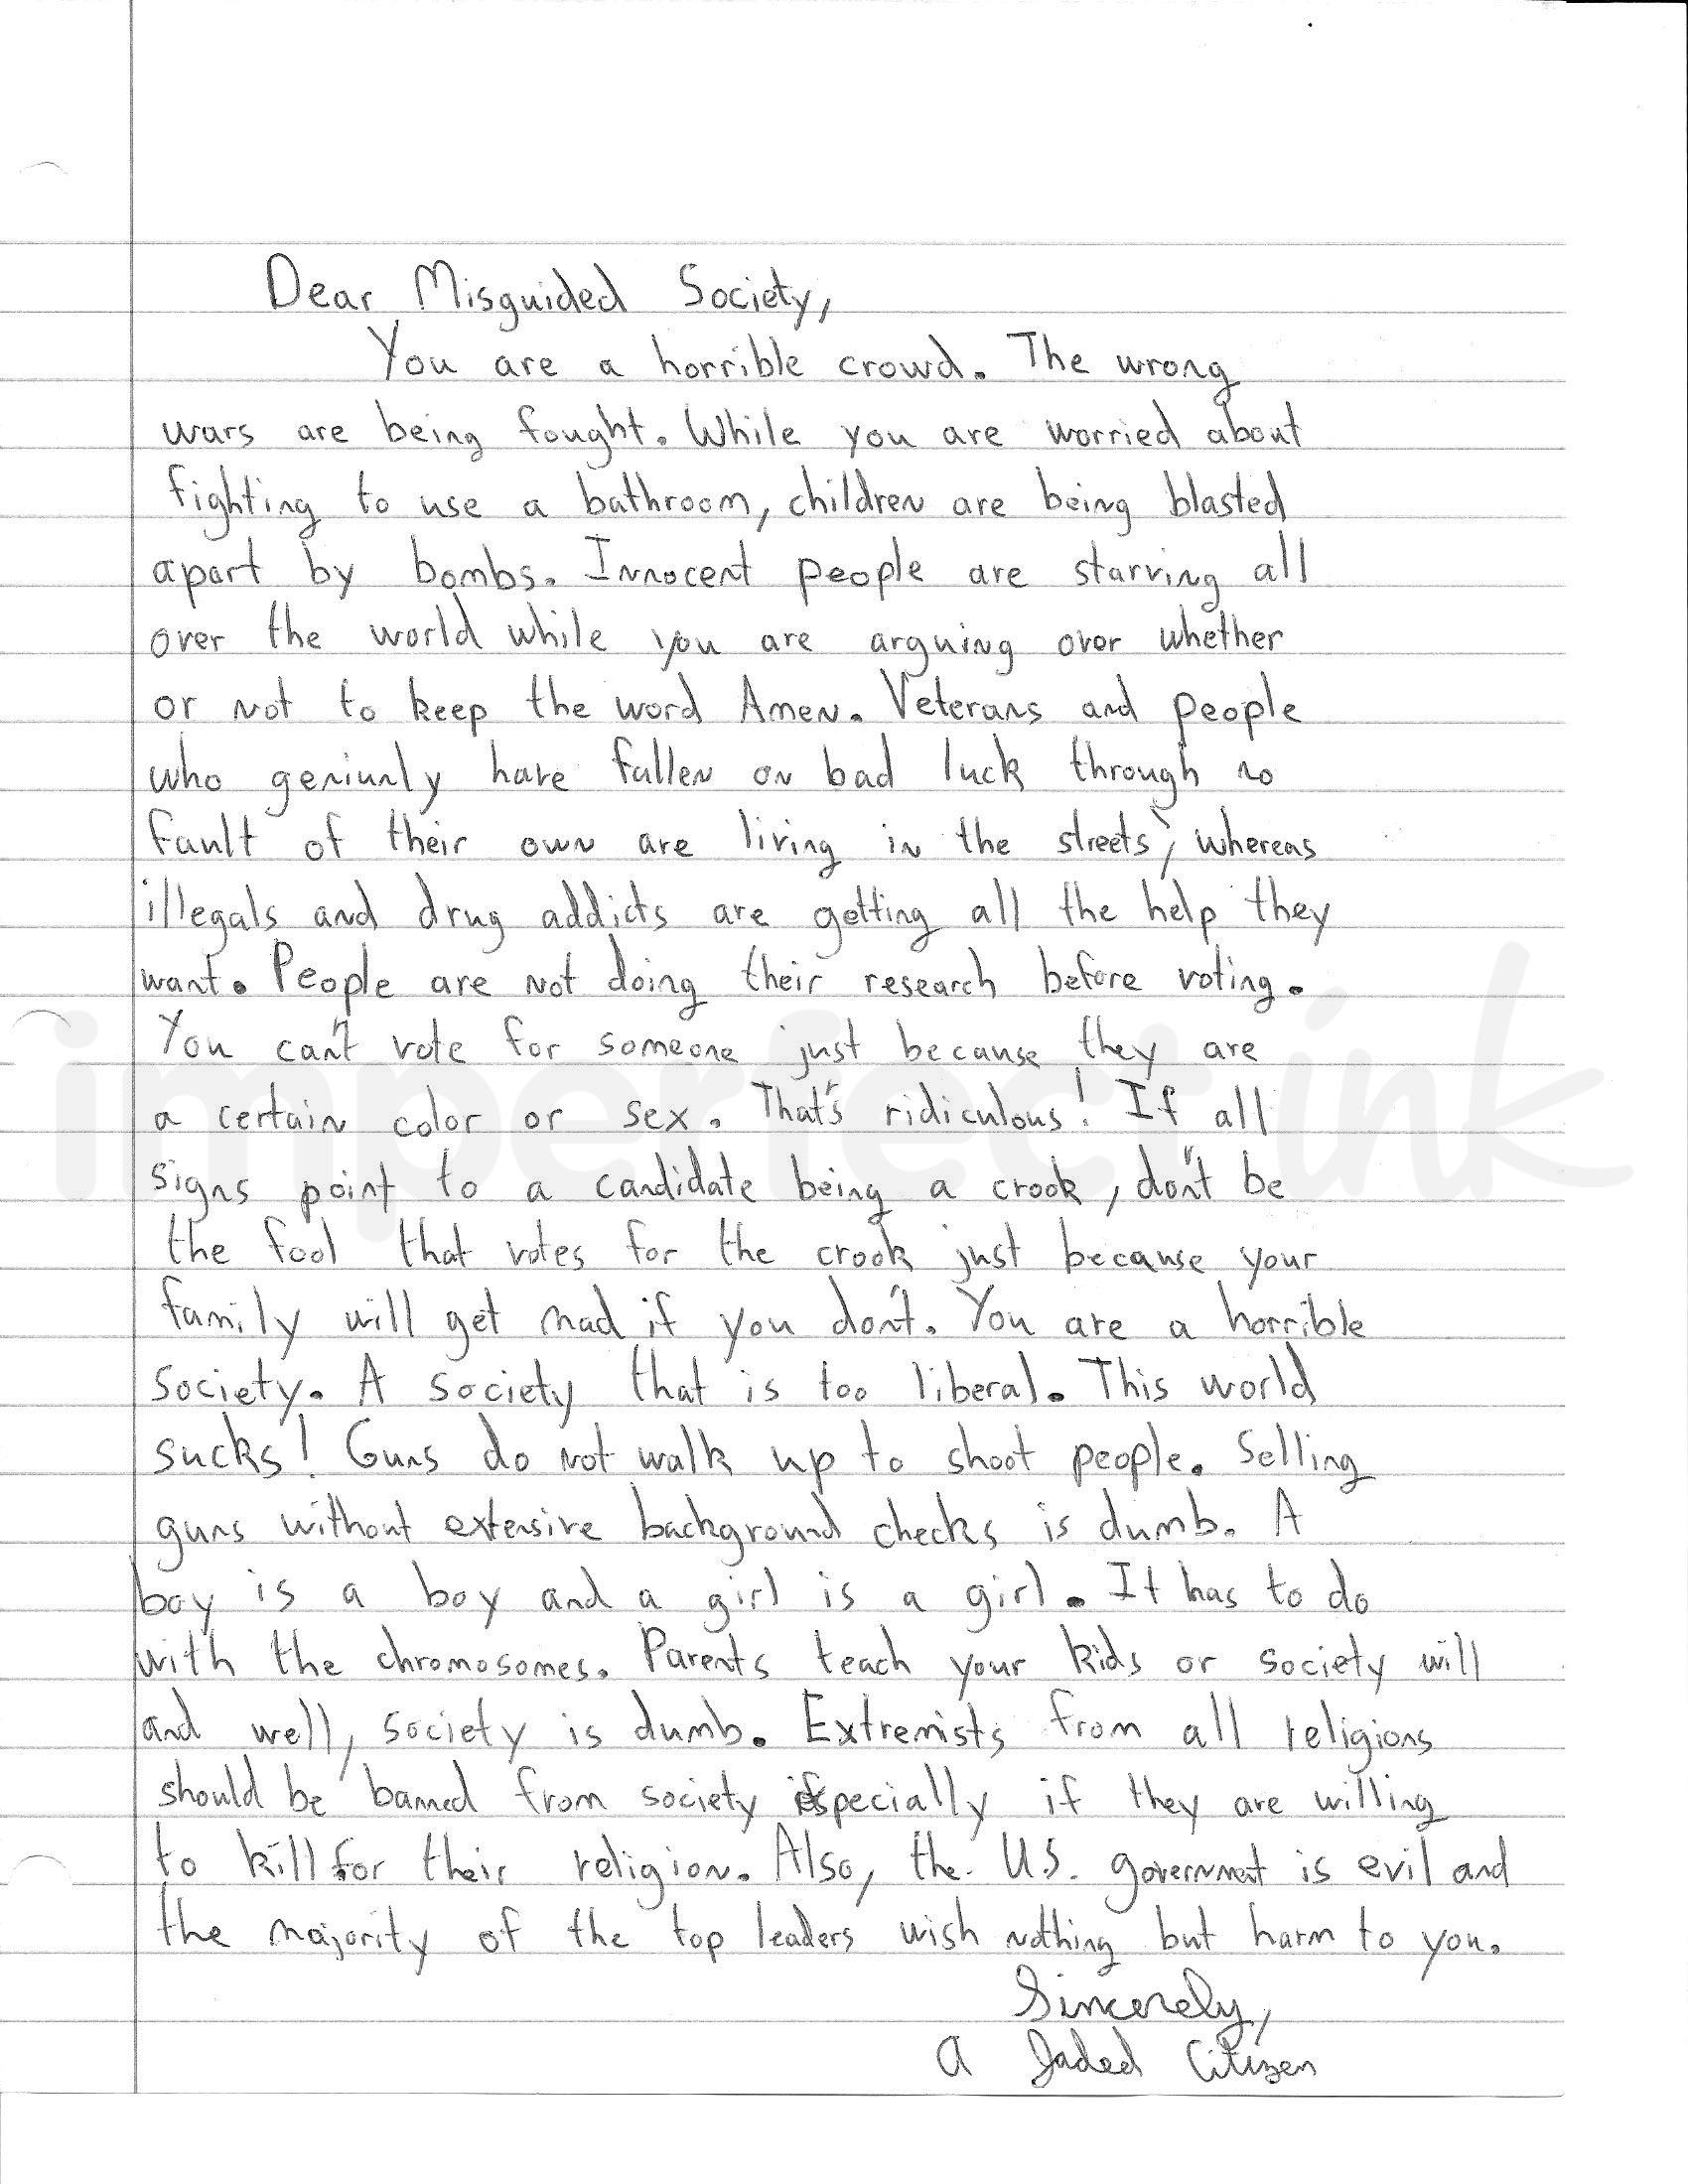 Dear Misguided Society,
You are a horrible crowd. The wrong
wars are being fought. While you are worried about
fighting to use a bathroom, children are being blasted
apart by bombs. Innocent people are starving all
over the world while you are arguing over whether
or not to keep the word Amen. Veterans and people
who geniunly have fallen on bad luck through no
fault of their own are living in the streets, whereas
illegals and drug addicts are getting all the help they
want. People are not doing their research before voting.
You can't vote for someone just because they are
a certain color or sex. That's ridiculous! If all
signs point to a candidate being a crook, don't be
the fool that votes for the crook just because your
family will get mad if you don't. You are a horrible
society. A society that is too liberal. This world
sucks! Guns do not walk up to shoot people. Selling
guns without extensive background checks is dumb. A
boy is a boy and a girl is a girl. It has to do
with the chromosomes. Parents teach your kids or society will
and well, society is dumb. Extremists from all religions
should be banned from society especially if they are willing
to kill for their religion. Also, the U.S. government is evil and
the majority of the top leaders wish nothing but harm to you.
Sincerely,
A Jaded Citizen
imperfect ink